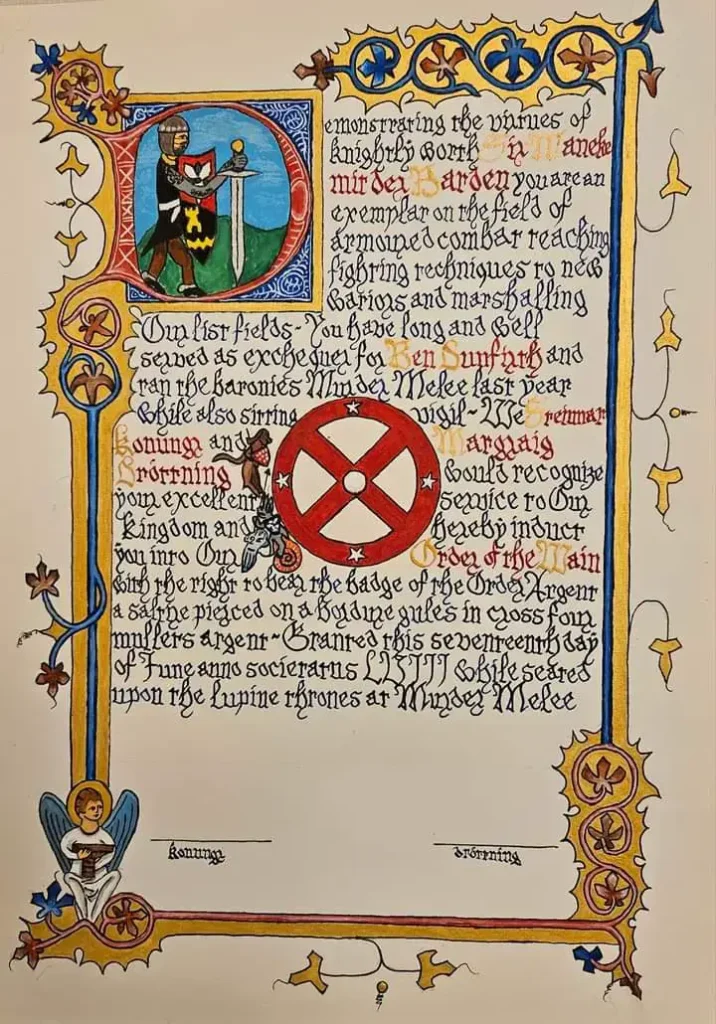 Demonstrating the virtues of
knightly worth Sir Maneke
mir der Barden you are an
exemplar on the field of
armoured combat teaching
fighting techniques to new
wariors and marshalling
Our list fields - You have long and well
served as exchequer for Ben Dunfirth and
ran the baronies Murder Melee last year
while also sitting vigil - We Steinmar
Konungr and Margraig
Dröttning would recognize
your excellent service to Our
Kingdom and hereby induct
you into Our Order of the Main
with the right to bear the badge of the Order Argent
a saltire pierced on a bordure gules in cross four
mullets argent - Granted this seventeenth day
of June anno societatus LVIII while seated
upon the Lupine thrones at Murder Melee
konungr drottning